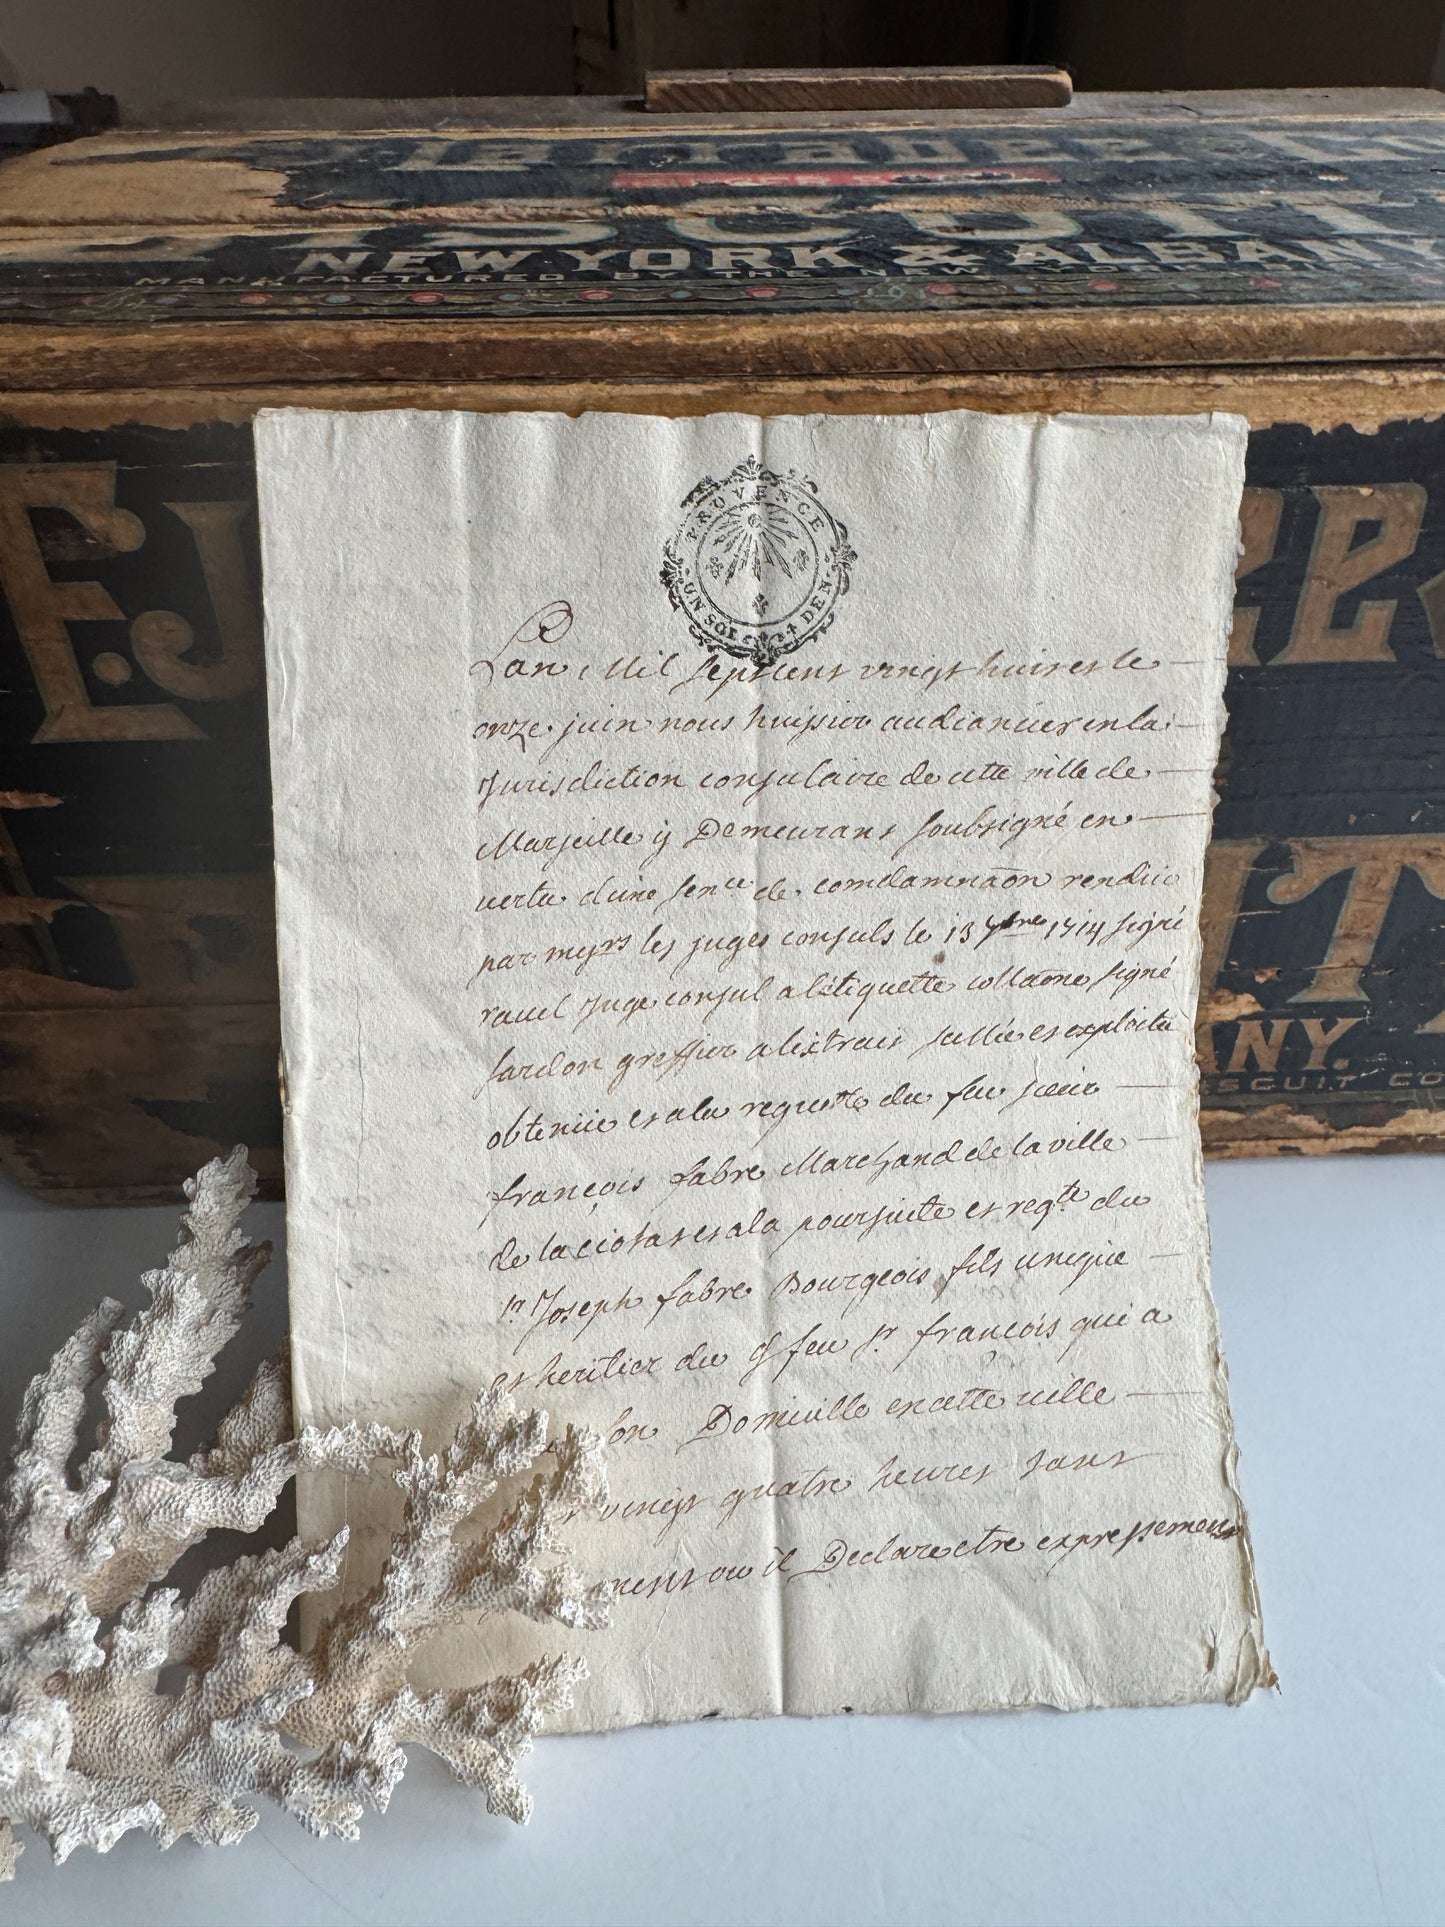 BISCUIT
NEW YORK & ALBANY
MANUFACTURED BY THE NEW YORK
F.J.
NY.
BISCUIT CO
PROVENCE
UN SOL 4 DEN
Lan Mil sept cent vingt huit et le
onze juin nous huissier audiancier en la
Jurisdiction consulaire de cette ville de
Marseille y Demeurant soubsigné en
vertu dune sence de comdamnaon rendüe
par mgrs les juges consuls le 13 7bre 1714 signé
ravel Juge consul a létiquette collaone signé
sardon greffier a lextrait sellée et exploitée
obtenüe et a la requette du feu sieur
françois fabre Marchand de la ville
de la ciotat et a la poursuite et reqte du
sr Joseph fabre Bourgeois fils unique
et heritier du d feu sr françois qui a
son Domicille en cette ville
vingt quatre heures sans
ou il Declare etre expressement